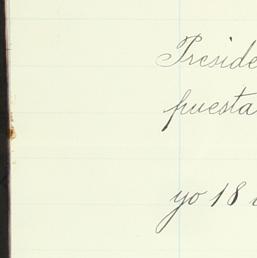 Preside
puesta
yo 18